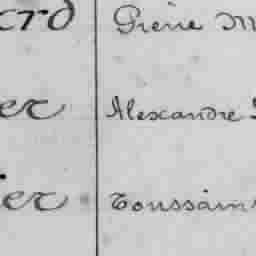 crd Pierre M
er Alexandre
ier Toussaint